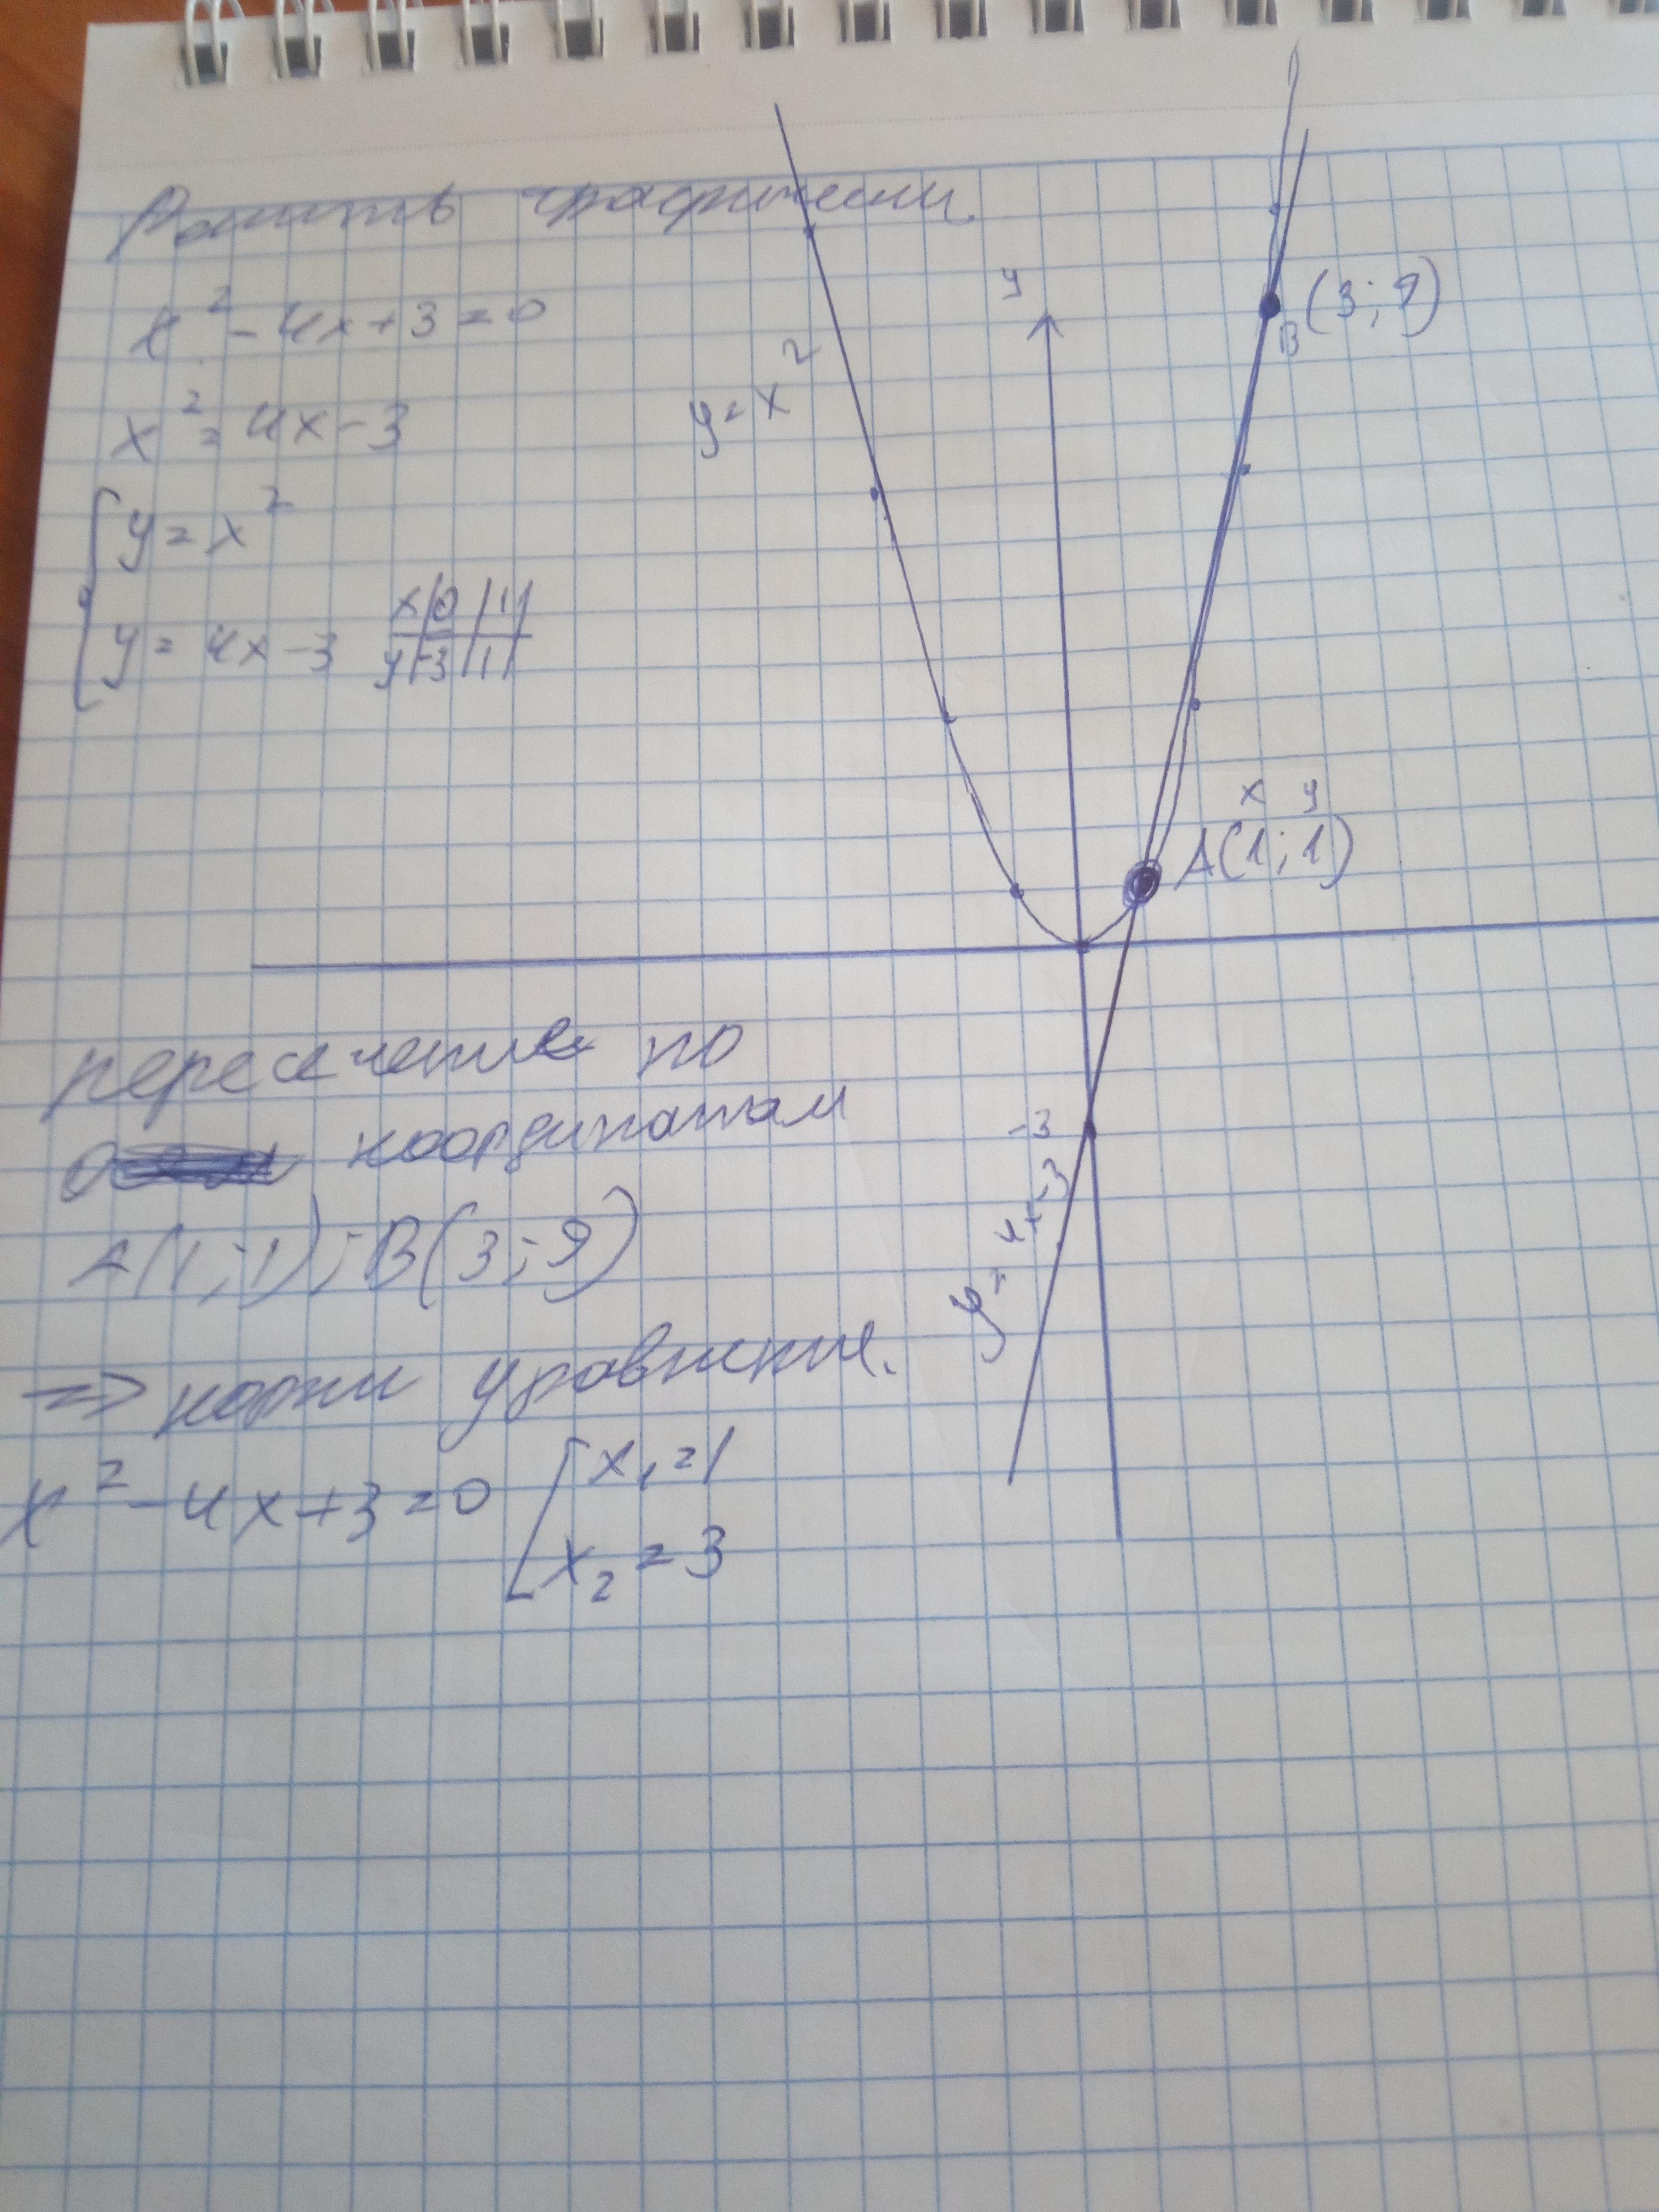 Решить графически
x² - 4x + 3 = 0
x² = 4x - 3
y = x²
y = 4x - 3
x | 0 | 1
y | -3 | 1
y = x²
y
B (3; 9)
x y
A (1; 1)
-3
y = 4x - 3
пересечение по
координатам
A (1; 1); B (3; 9)
=> корни уравнения.
x² - 4x + 3 = 0
x₁ = 1
x₂ = 3